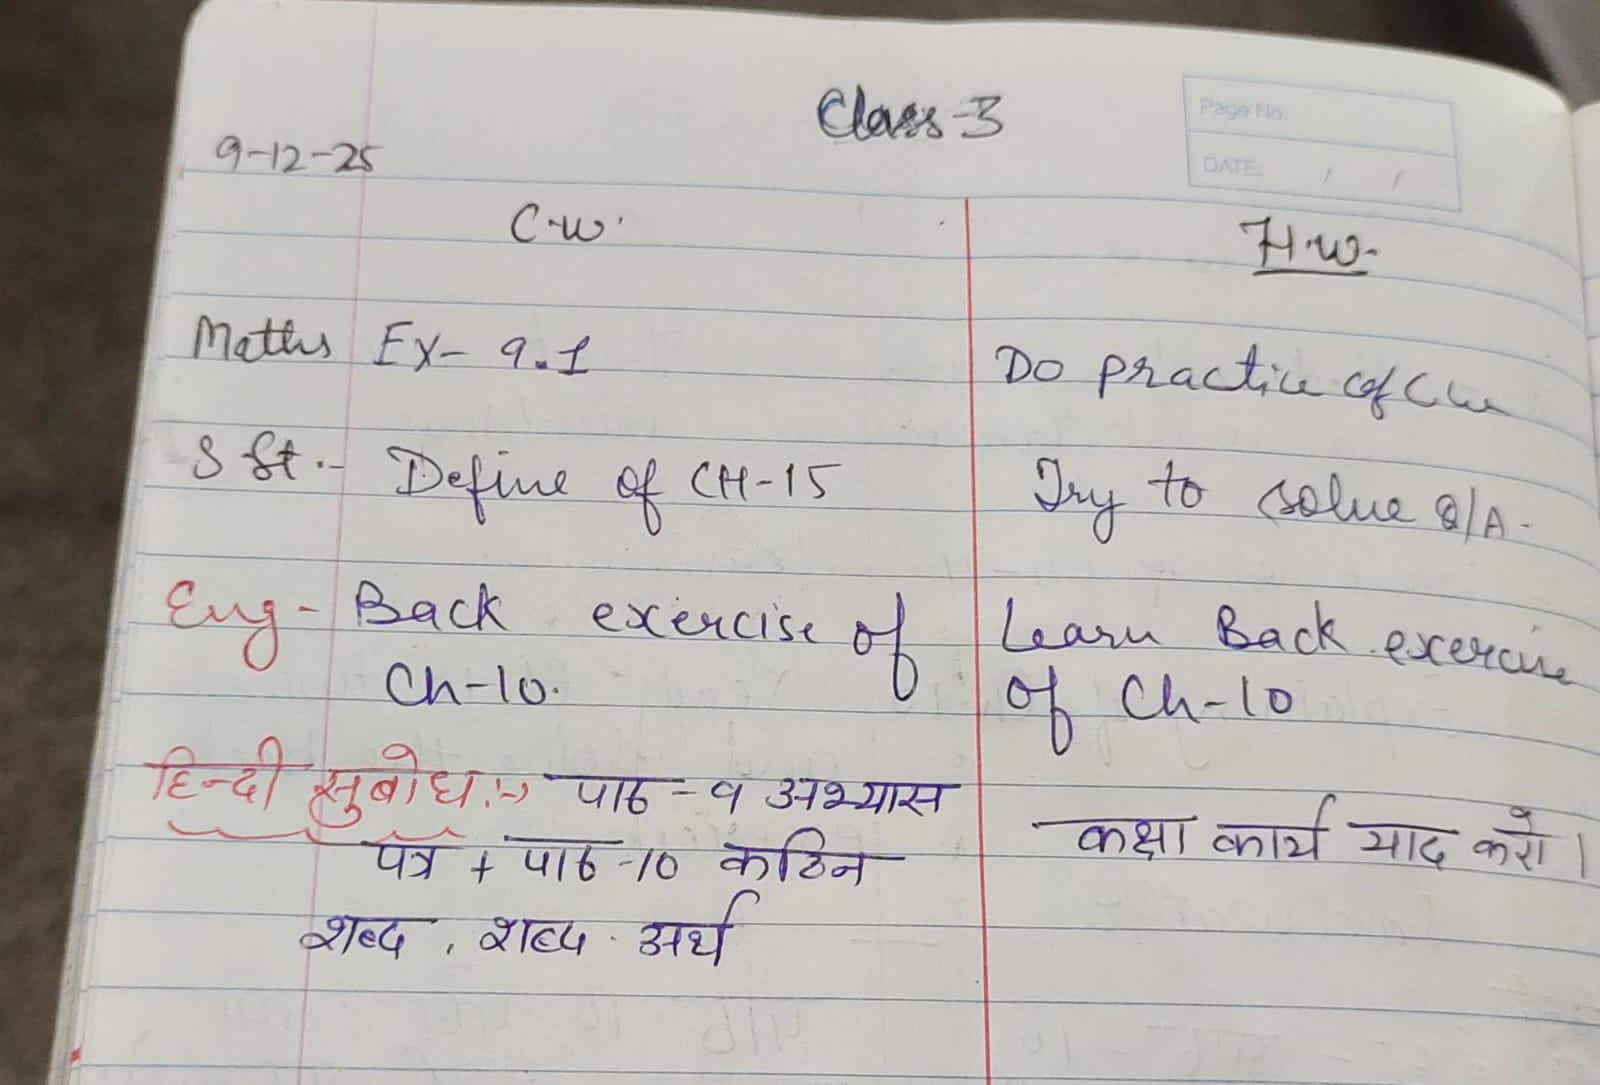 Class-3
Page No.
9-12-25
DATE / /
C.W.
H.W.
Maths Ex- 9.1
Do practice of C.w
S St.- Define of CH-15
Try to solve Q/A-
Eng- Back exercise of
Learn Back exercise
Ch-10.
of Ch-10
हिन्दी सुबोध:-> पाठ-९ अभ्यास
पत्र + पाठ-10 कठिन
कक्षा कार्य याद करो।
शब्द, शब्द. अर्थ